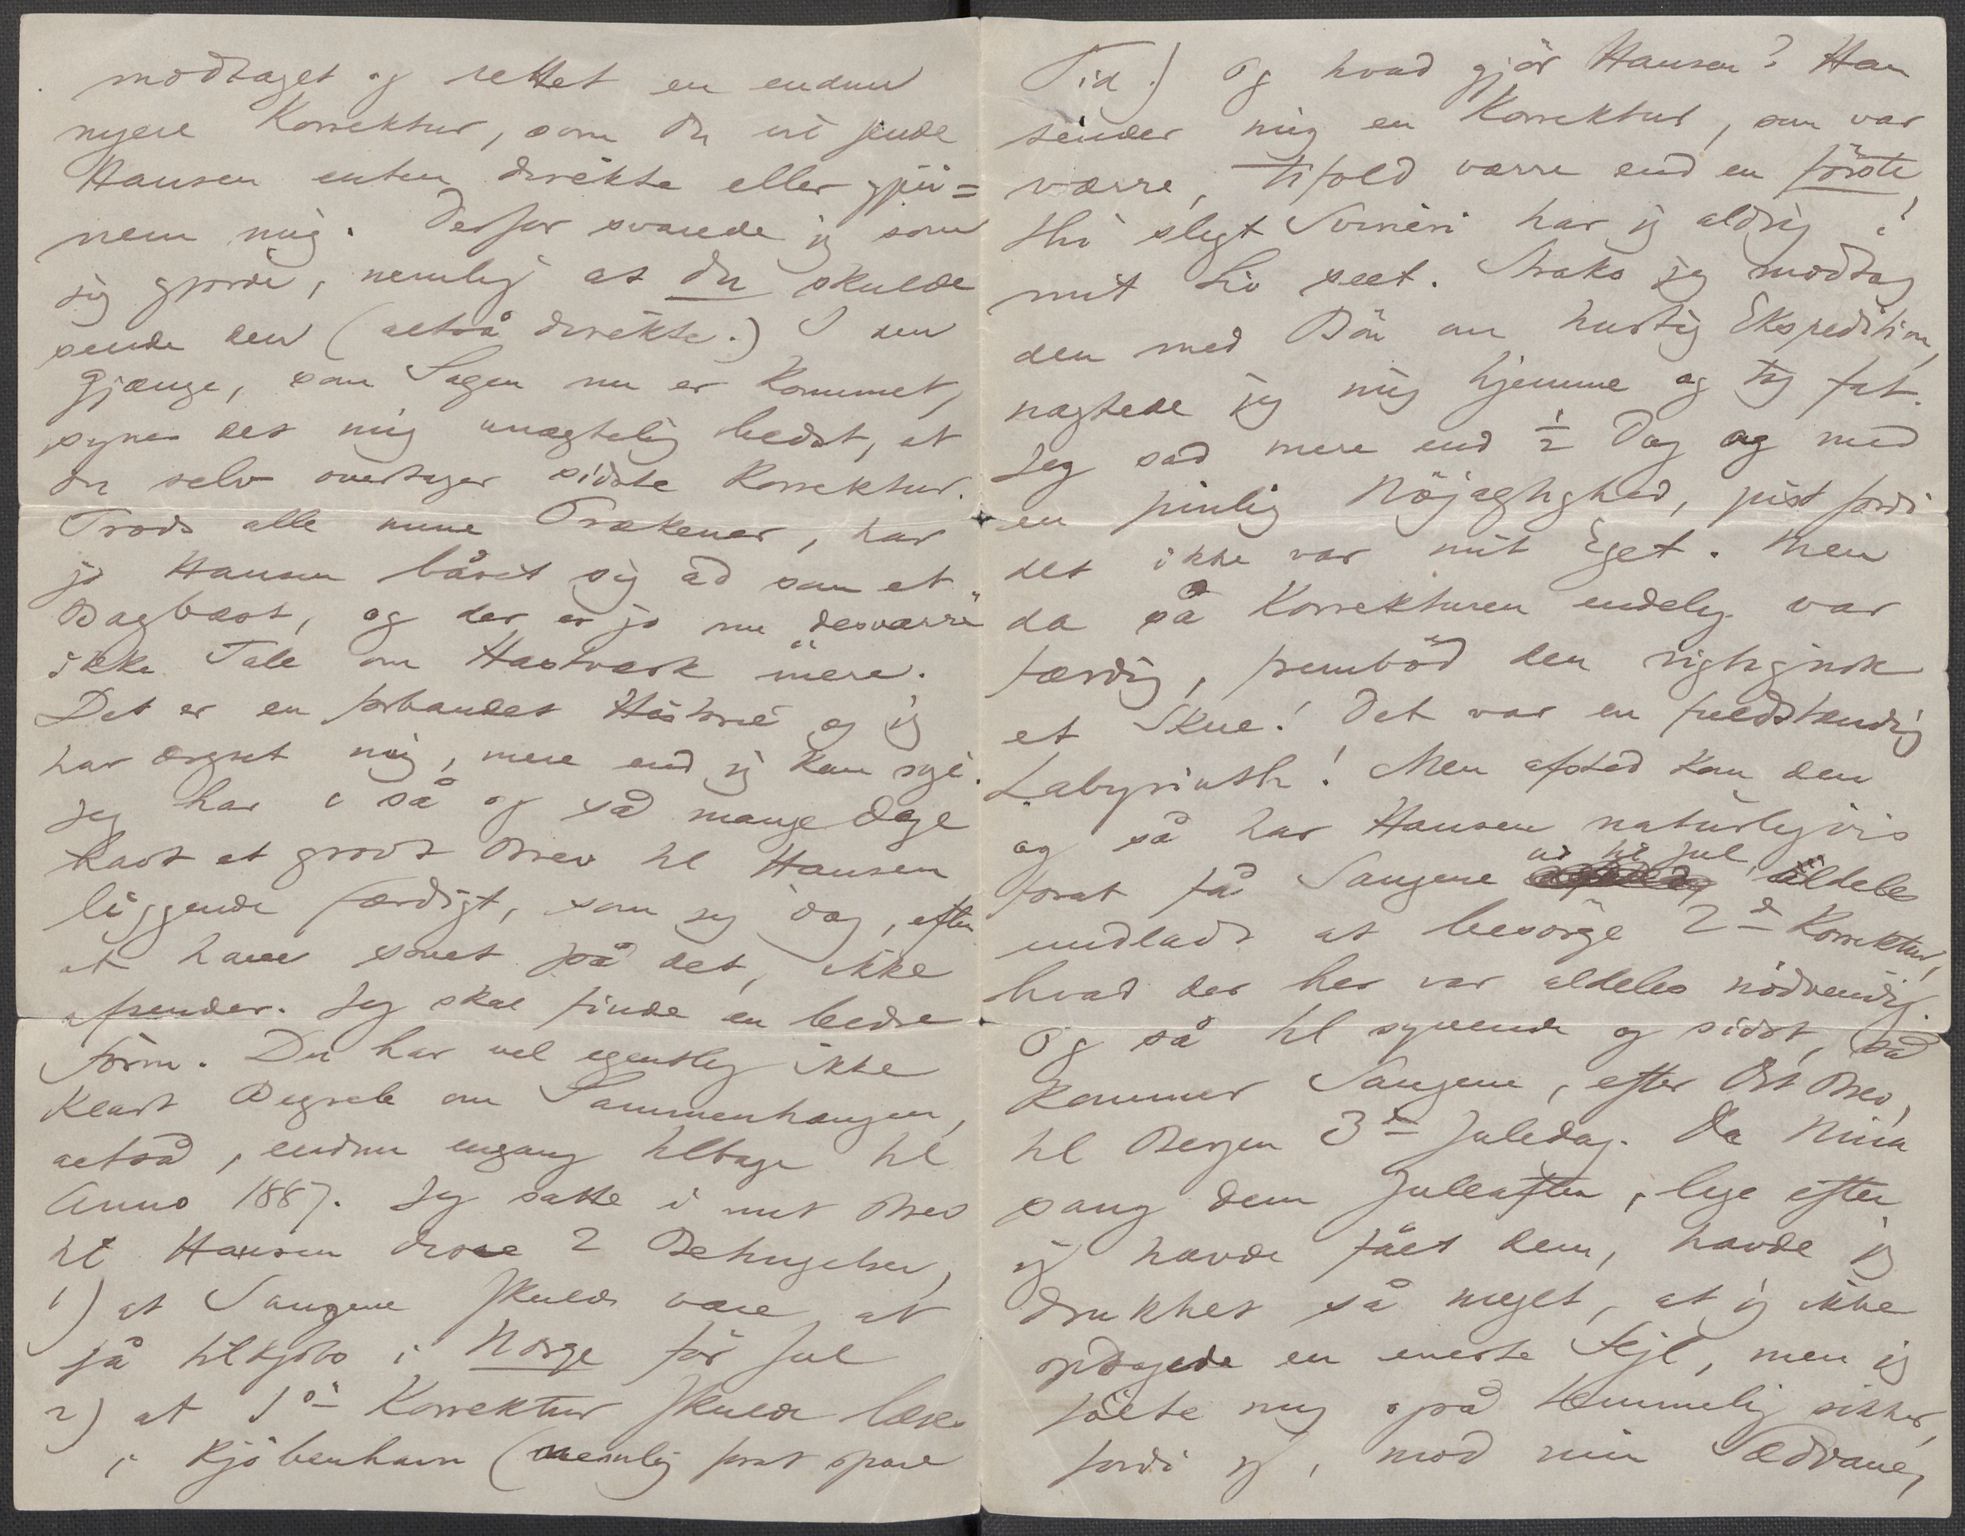 modtaget og rettet en endnu
nyere Korrektur, som Du vil sende
Hansen enten direkte eller gjen=
nem mig. Derfor svarede jeg som
jeg gjorde, nemlig at Du skulde
sende den (altså direkte.) I den
Gjænge, som Sagen nu er kommet,
synes det mig unægtelig bedst, at
Du selv overtager sidste Korrektur.
Trods alle mine Prækener, har
jo Hansen båret sig ad som et
Bagbæst, og der er jo nu desværre
ikke Tale om Hastværk mere.
Det er en forbandet Historie og jeg
har ærgret mig, mere end jeg kan sige.
Jeg har i så og så mange Dage
havt et grovt Brev til Hansen
liggende færdigt, som jeg idag, efter
at have sovet på det, ikke
afsender. Jeg skal finde en bedre
Form. Du har vel egentlig ikke
klart Begreb om Sammenhængen,
altså, endnu engang tilbage til
Anno 1887. Jeg satte i mit Brev
til Hansen disse 2 Betingelser,
1) at Sangene skulde være at
få tilkjøbs i Norge før Jul
2) at 1ste Korrektur skulde læses
i Kjøbenhavn (nemlig forat spare
Tid.) Og hvad gjör Hansen? Han
sender mig en Korrektur, som var
værre, tifold værre end en förste,
thi sligt Svineri har jeg aldrig i
mit Liv seet. Straks jeg modtog
den med Bön om hurtig Ekspedition,
nægtede jeg mig hjemme og tog fat.
Jeg sad mere end ½ Dag og med
en pinlig Nöjagtighed, just fordi
det ikke var mit Eget. Men
da så Korrekturen endelig var
færdig, fremböd den rigtignok
et Skue! Det var en fuldstændig
Labyrinth! Men afsted kom den
og så har Hansen naturligvis
forat få Sangene ud til Jul, aldeles
undladt at besörge 2d Korrektur,
hvad der her var aldeles nödvendig.
Og så til syvende og sidst, så
kommer Sangene, efter Dit Brev,
til Bergen 3die Juledag. Da Nina
sang dem Juleaften, lige efter
jeg havde fået dem, havde jeg
drukket så meget, at jeg ikke
opdagede en eneste Fejl, men jeg
fölte mig også temmelig sikker,
fordi jeg, mod min Sædvane,